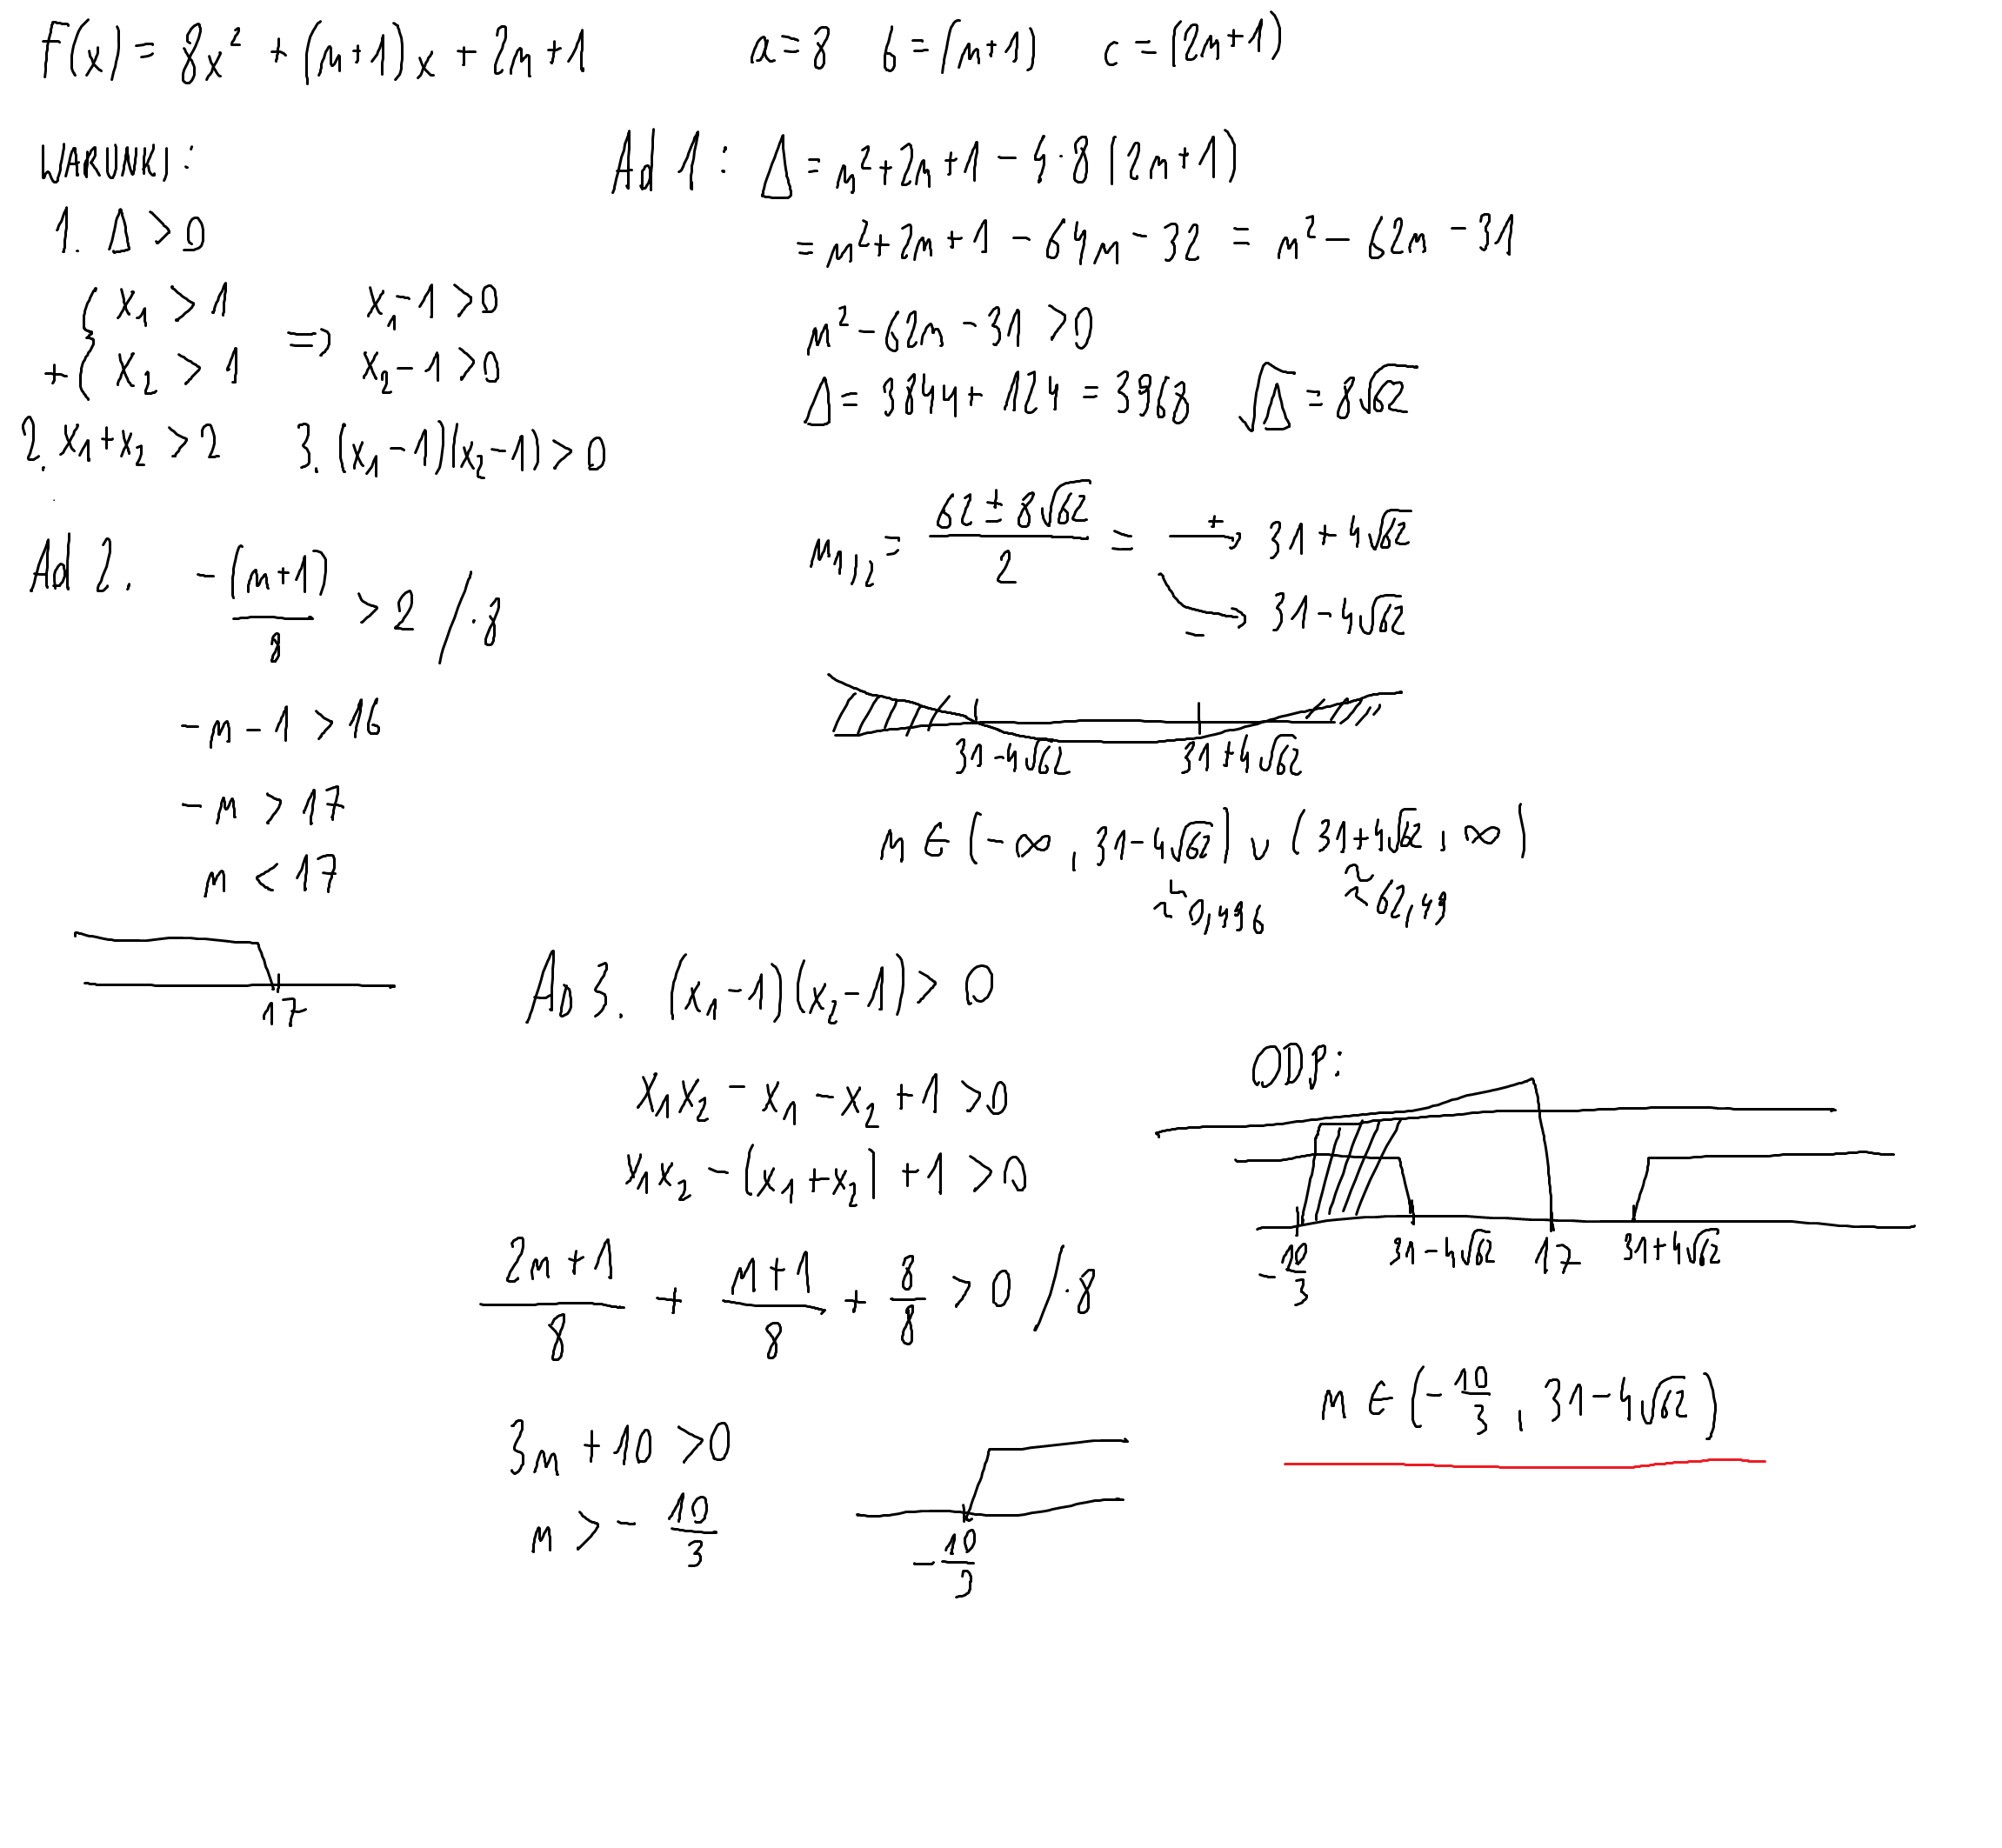 F(x) = 8x² + (m+1)x + 2m+1 a=8 b=(m+1) c=(2m+1)
WARUNKI:
1. Δ>0
+{ x₁ > 1 => x₁-1>0
x₂ > 1 x₂-1>0
2. x₁+x₂ >2 3. (x₁-1)(x₂-1)>0
Ad 2. -(m+1)/8 > 2 /·8
-m-1 >16
-m > 17
m < 17
17
Ad 1: Δ=m²+2m+1 - 4·8(2m+1)
= m²+2m+1 - 64m - 32 = m² - 62m - 31
m² - 62m - 31 >0
Δ = 3844+ 124 = 3968 √Δ = 8√62
m₁,₂ = (62 ± 8√62)/2 = + → 31+4√62
- → 31-4√62
31-4√62 31+4√62
m ∈ (-∞, 31-4√62) ∪ (31+4√62, ∞)
≈0,496 ≈62,49
AD 3. (x₁-1)(x₂-1)> 0
x₁x₂ - x₁ - x₂ +1 >0
x₁x₂ - (x₁+x₂) +1 >0
(2m+1)/8 + (m+1)/8 + 8/8 >0 /·8
3m +10 >0
m > - 10/3
-10/3
ODP:
-10/3 31-4√62 17 31+4√62
m ∈ (-10/3, 31-4√62)